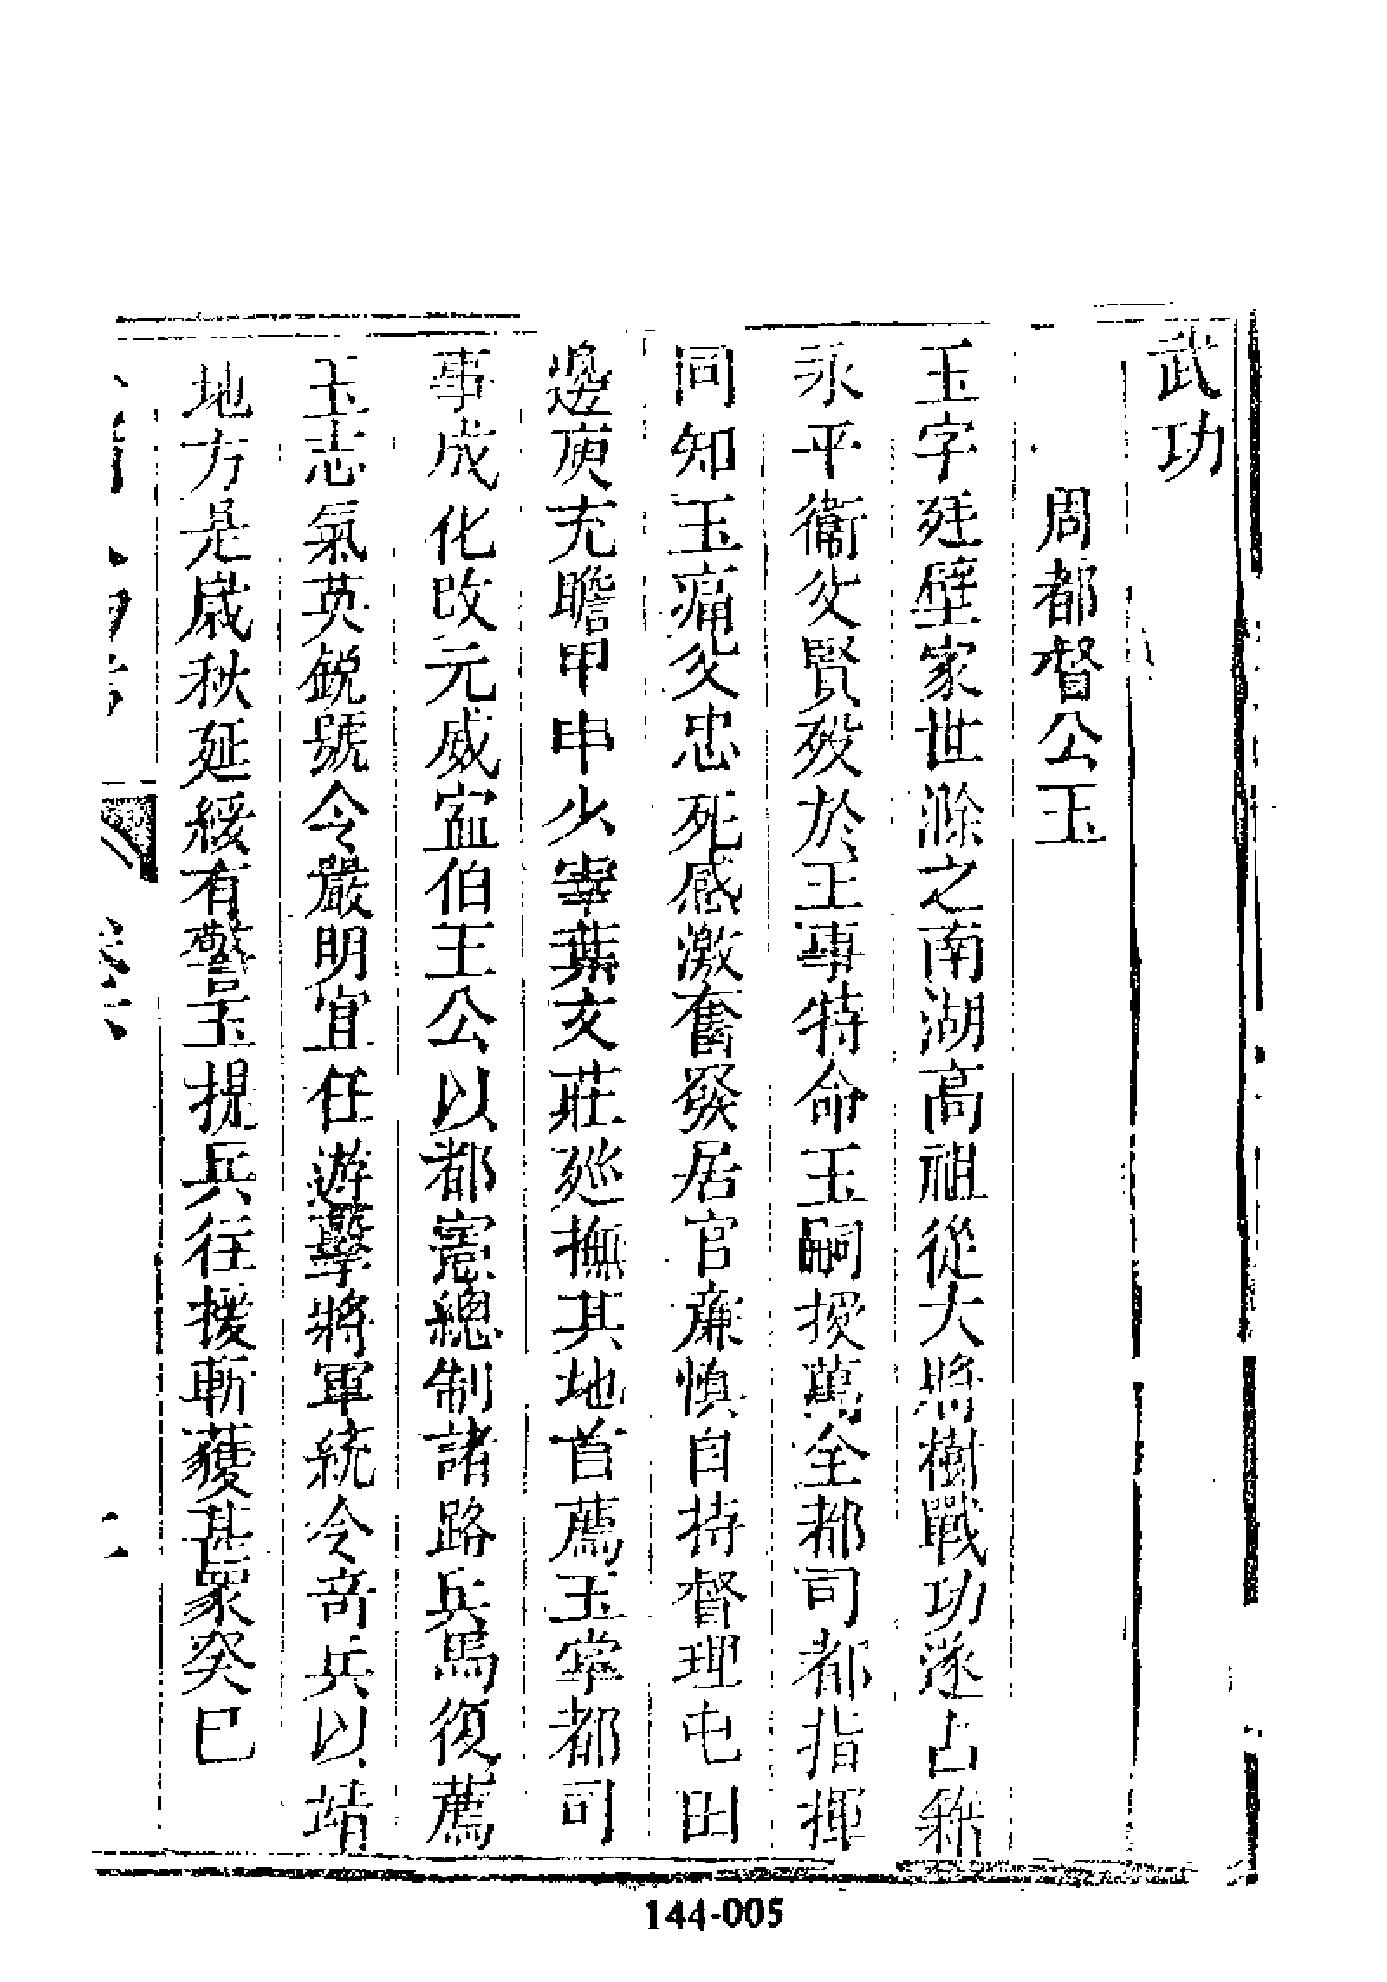 武功
周都督公玉
玉字廷壁家世滁之南湖高祖從大將樹戰功遂占籍
永平衞父賢歿於王事特命玉嗣授萬全都司都指揮
同知玉痛父忠死感激奮發居官廉慎自持督理屯田
邊庾充贍甲申少宰葉文莊廵撫其地首薦玉掌都司
事成化改元威寍伯王公以都憲總制諸路兵馬復薦
玉志氣英銳號令嚴明宜任遊擊將軍統令竒兵以靖
地方是歲秋延綏有警玉提兵往援斬獲甚衆癸巳
144-005